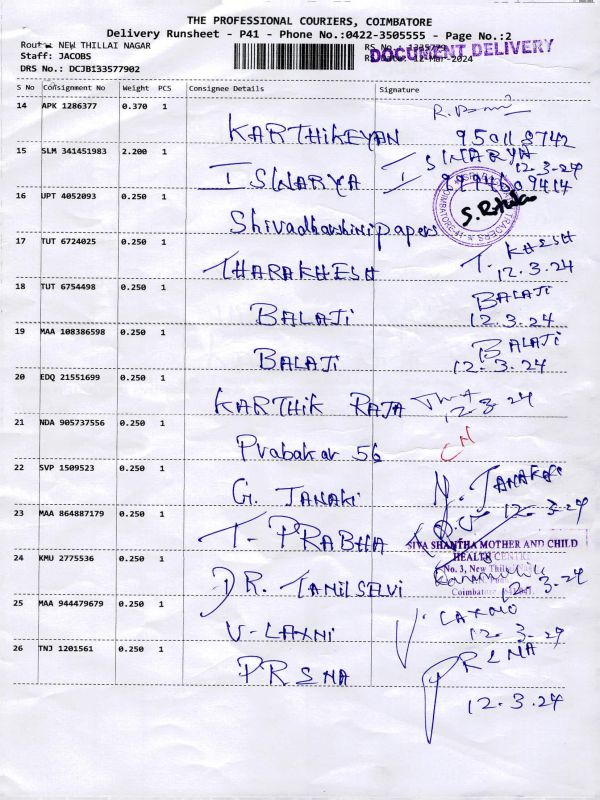 THE PROFESSIONAL COURIERS, COIMBATORE
Delivery Runsheet - P41 - Phone No.:0422-3505555 - Page No.:2
Route: NEW THILLAI NAGAR
DOCUMENT DELIVERY
Staff: JACOBS
12-Mar-2024
DRS No.: DCJB133577902
S No Consignment No Weight PCS Consignee Details Signature
14 APK 1286377 0.370 1
KARTHIKEYAN
15 SLM 341451983 2.200 1
ISWARYA ISWARYA
12-3-24
16 UPT 4052093 0.250 1
Shivadharshini papers
17 TUT 6724025 0.250 1
THARAKHESH T. KHESH
12.3.24
18 TUT 6754498 0.250 1
BALAJI BALAJI
12.3.24
19 MAA 108386598 0.250 1
BALAJI BALAJI
12.3.24
20 EDQ 21551699 0.250 1
KARTHIK RAJA
12-3-24
21 NDA 905737556 0.250 1
Prabakar 56 CN
22 SVP 1509523 0.250 1
G. JANAKI
12-3-24
23 MAA 864887179 0.250 1
T. PRABHA
SIVA SHANTHA MOTHER AND CHILD
HEALTH CENTRE
No. 3, New
Coimbatore
24 KMU 2775536 0.250 1
DR. TAMILSELVI
12-3-24
25 MAA 944479679 0.250 1
V-LAXNI
12-3-24
26 TNJ 1201561 0.250 1
PRSNA
12.3.24